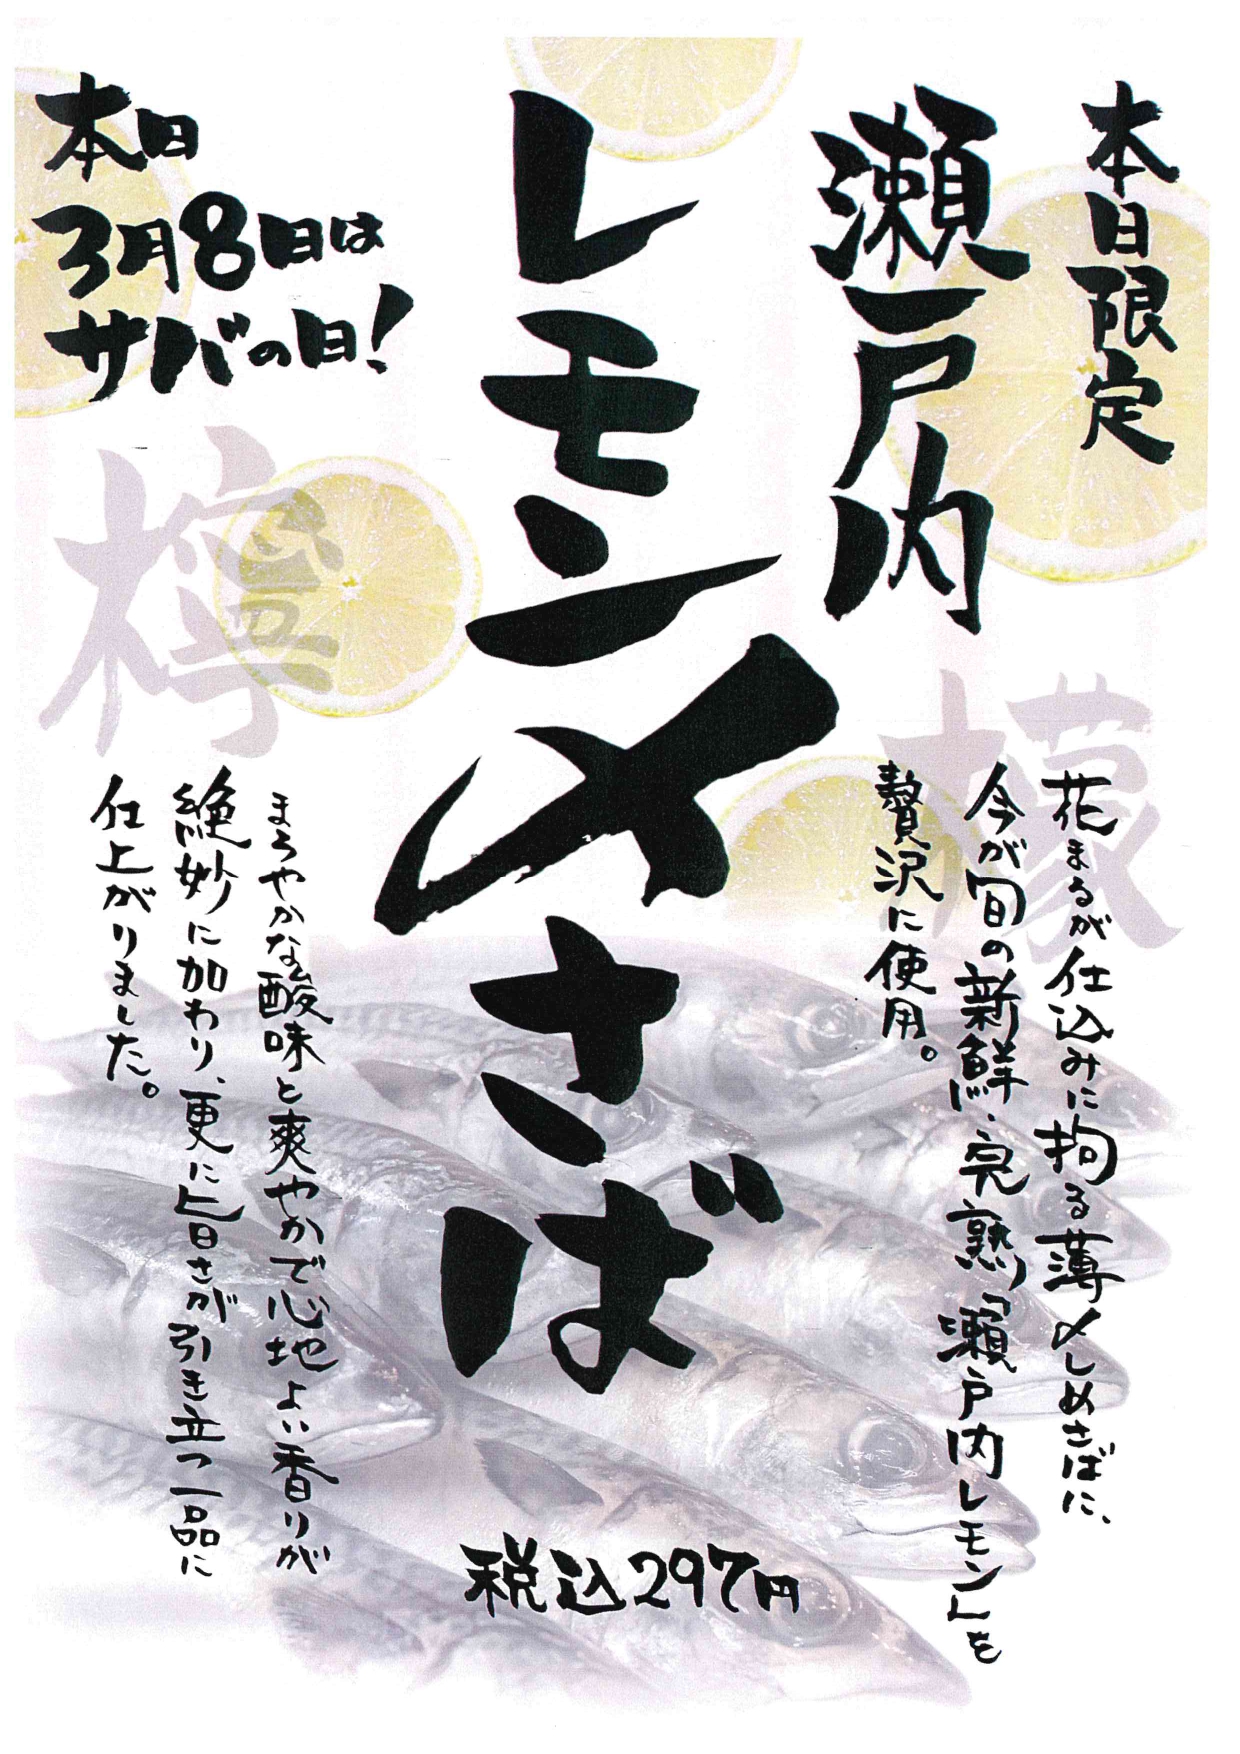 本日限定
瀬戸内
レモン〆さば
本日
3月8日は
サバの日!
檸
檬
花まるが仕込みに拘る薄〆しめさばに、
今が旬の新鮮・完熟「瀬戸内レモン」を
贅沢に使用。
まろやかな酸味と爽やかで心地よい香りが
絶妙に加わり、更に旨さが引き立つ一品に
仕上がりました。
税込297円